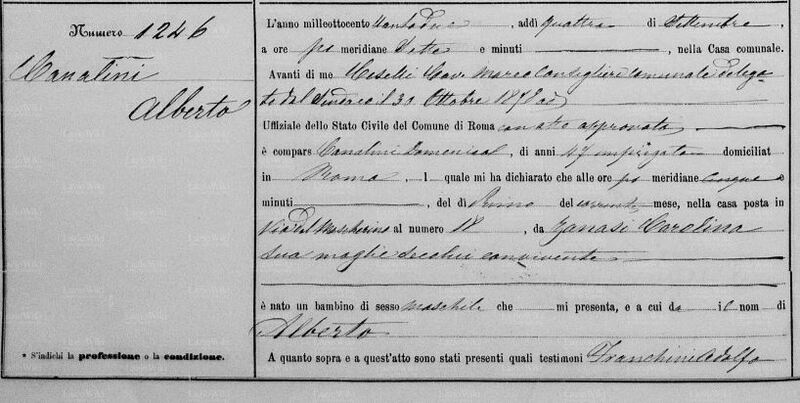 Numero 1246
Canalini
Alberto
* S'indichi la professione o la condizione.
L'anno milleottocento ttantadue, addì quattro di Settembre,
a ore po meridiane Sette e minuti, nella Casa comunale.
Avanti di me Cav. Marco Consigliere Comunale delega-
to dal Sindaco il 30 Ottobre 1878 ad
Uffiziale dello Stato Civile del Comune di Roma con atto approvato
è compars Canalini Domenico, di anni 47 impiegato domiciliat
in Roma, l quale mi ha dichiarato che alle ore po meridiane cinque e
minuti, del dì Primo del corrente mese, nella casa posta in
Via del Mascherino al numero 18, da Zanasi Carolina
sua moglie seco lui convivente
è nato un bambino di sesso maschile che mi presenta, e a cui da il nom di
Alberto
A quanto sopra e a quest'atto sono stati presenti quali testimoni Franchini Adolfo